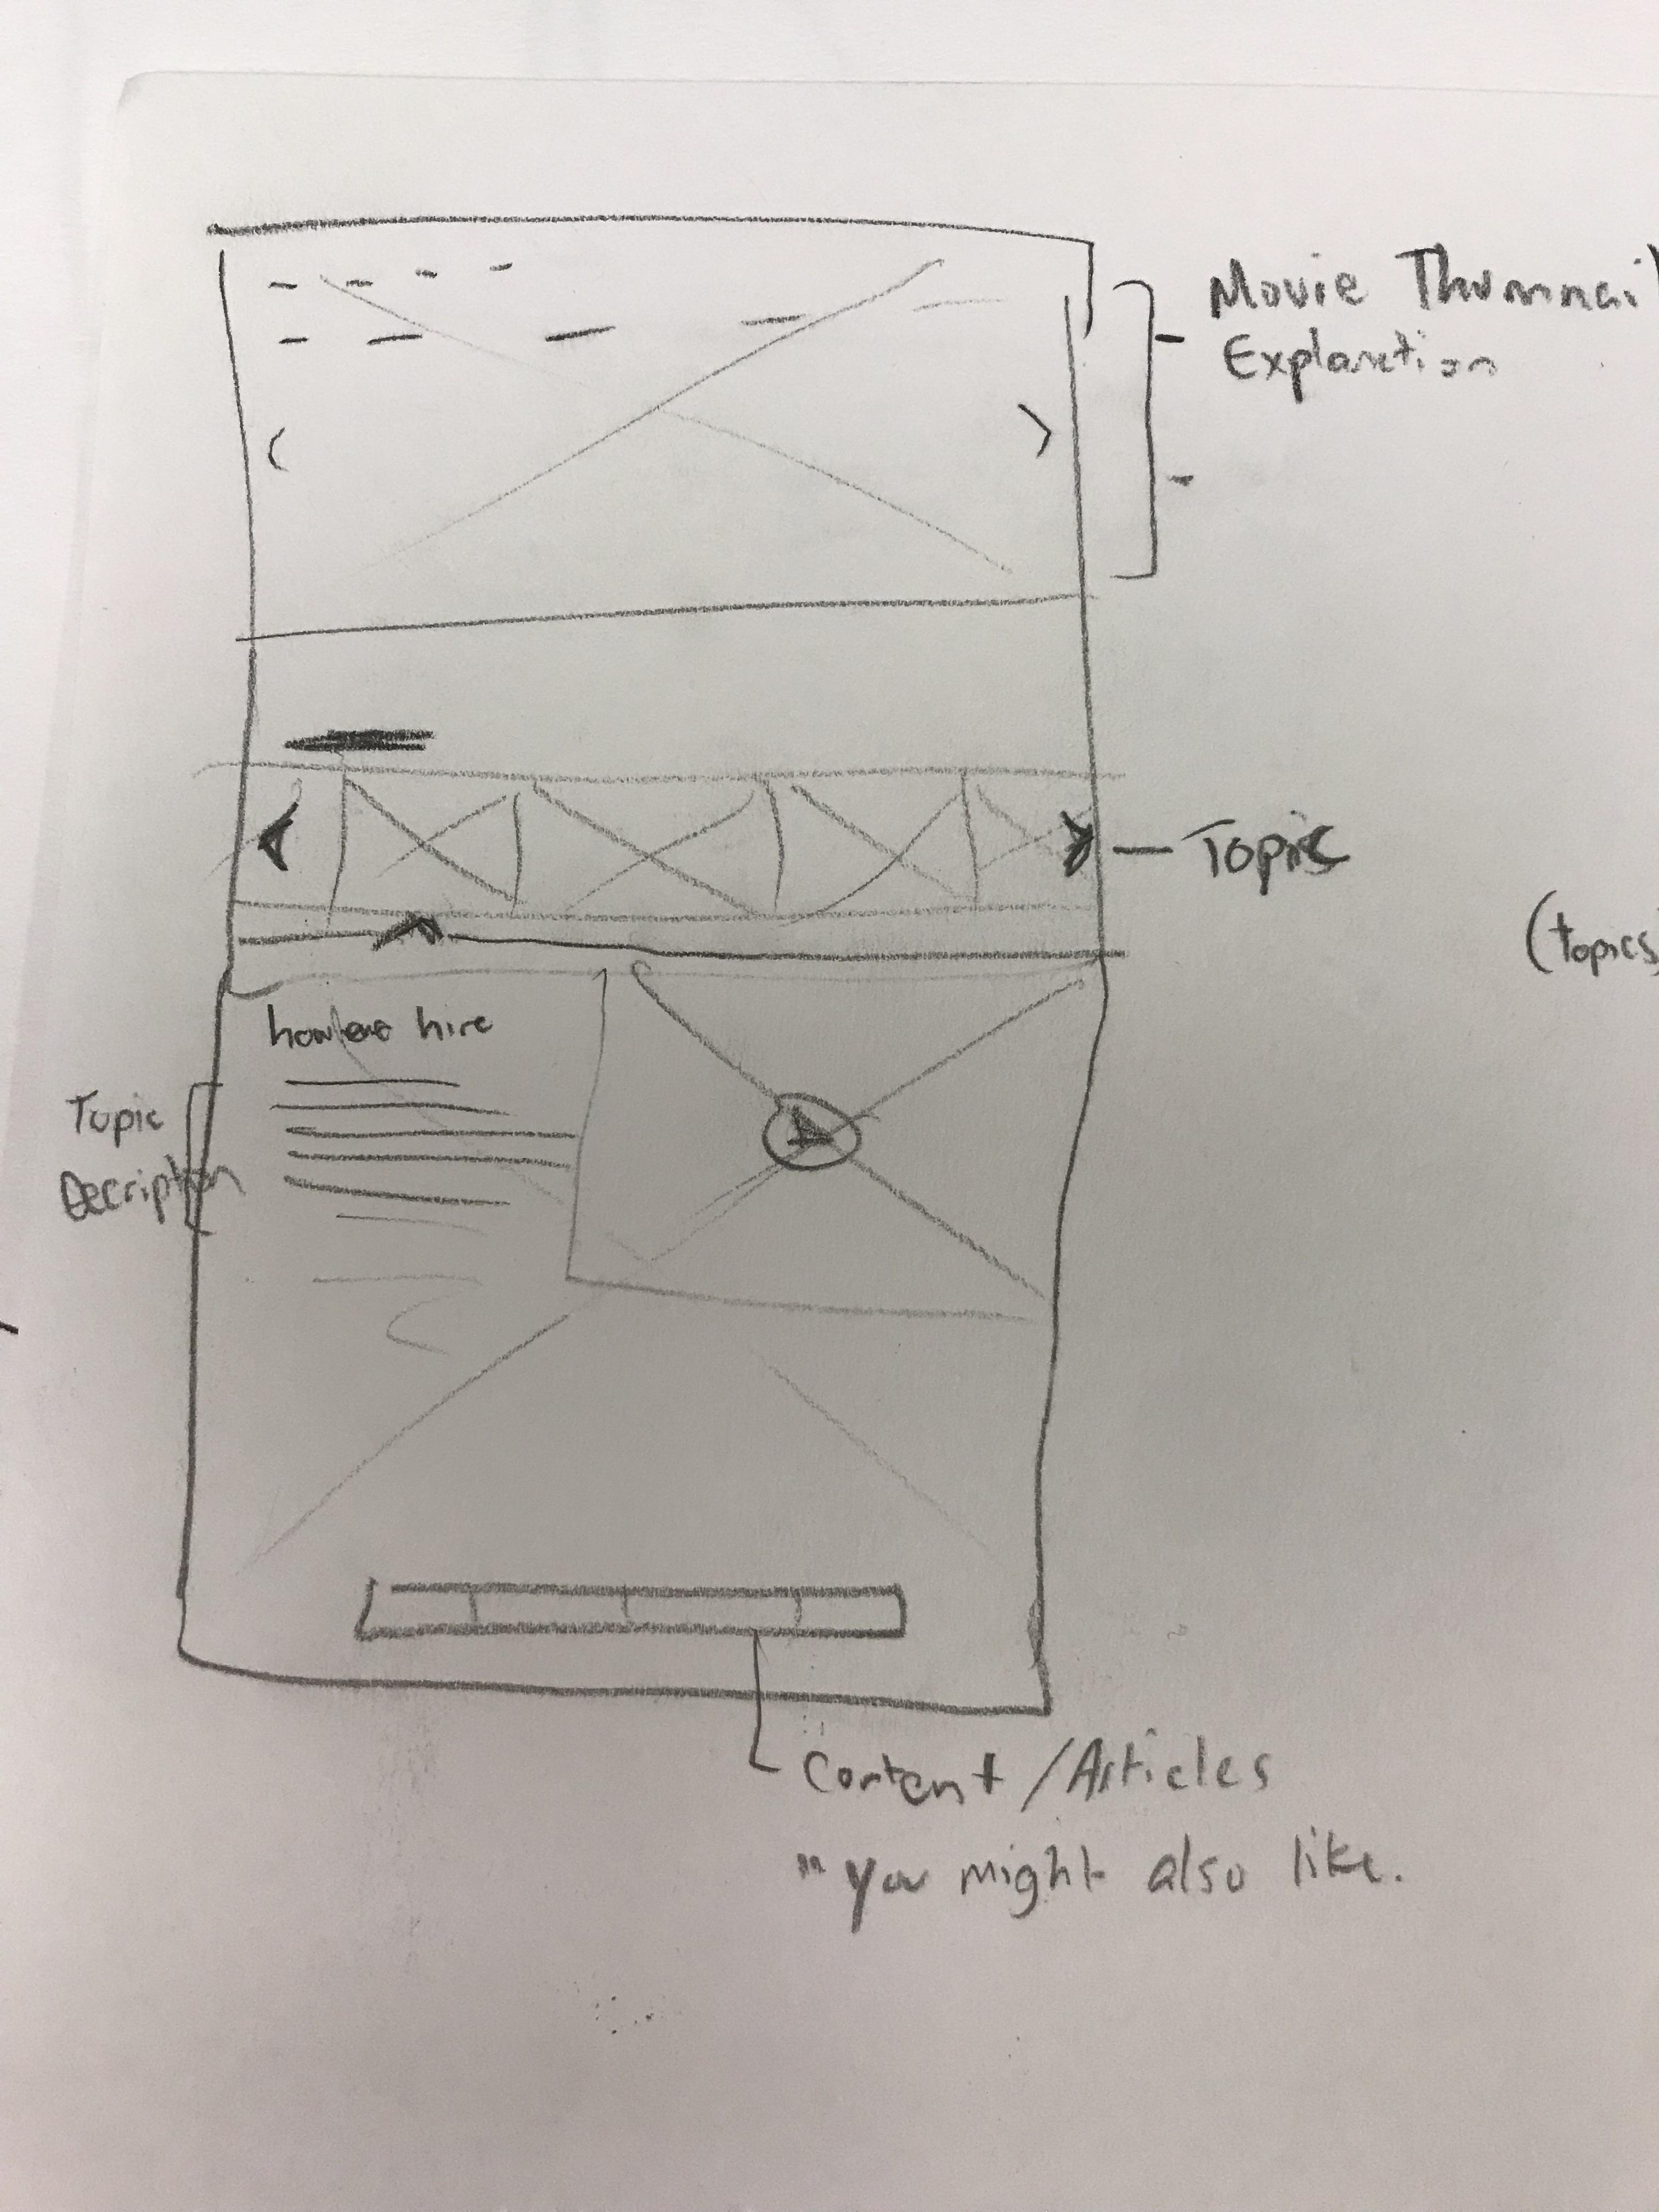 Movie Thumnail
Explanation
Topic
(topics
hire
Topic
Decription
Content / Articles
"you might also like.